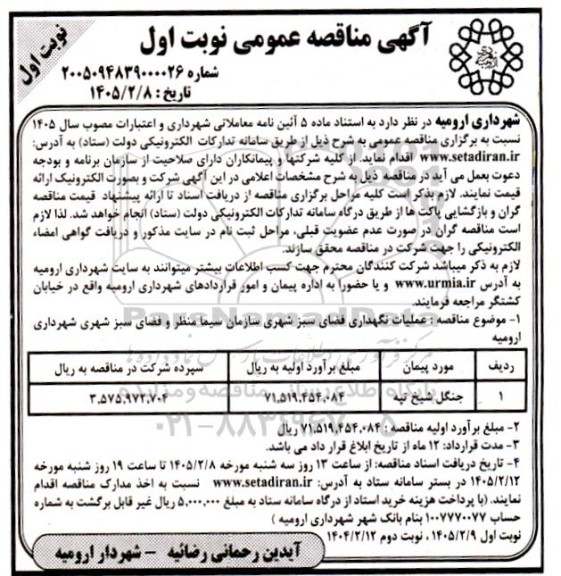 آگهی مناقصه عمومی نوبت اول
نوبت اول
شماره ۲۰۰۵۰۹۴۸۳۹۰۰۰۰۲۶
تاریخ : ۱۴۰۵/۲/۸
شهرداری ارومیه در نظر دارد به استناد ماده ۵ آئین نامه معاملاتی شهرداری و اعتبارات مصوب سال ۱۴۰۵
نسبت به برگزاری مناقصه عمومی به شرح ذیل از طریق سامانه تدارکات الکترونیکی دولت (ستاد) به آدرس:
www.setadiran.ir اقدام نماید. از کلیه شرکتها و پیمانکاران دارای صلاحیت از سازمان برنامه و بودجه
دعوت بعمل می آید در مناقصه ذیل به شرح مشخصات اعلامی در این آگهی شرکت و بصورت الکترونیک ارائه
قیمت نمایند. لازم بذکر است کلیه مراحل برگزاری مناقصه از دریافت اسناد تا ارائه پیشنهاد قیمت مناقصه
گران و بازگشایی پاکت ها از طریق درگاه سامانه تدارکات الکترونیکی دولت (ستاد) انجام خواهد شد. لذا لازم
است مناقصه گران در صورت عدم عضویت قبلی، مراحل ثبت نام در سایت مذکور و دریافت گواهی امضاء
الکترونیکی را جهت شرکت در مناقصه محقق سازند.
لازم به ذکر میباشد شرکت کنندگان محترم جهت کسب اطلاعات بیشتر میتوانند به سایت شهرداری ارومیه
به آدرس www.urmia.ir و یا حضورا به اداره پیمان و امور قراردادهای شهرداری ارومیه واقع در خیابان
کشتگر مراجعه فرمایند.
۱- موضوع مناقصه : عملیات نگهداری فضای سبز شهری سازمان سیما منظر و فضای سبز شهری شهرداری
ارومیه
ردیف مورد پیمان مبلغ برآورد اولیه به ریال سپرده شرکت در مناقصه به ریال
۱ جنگل شیخ تپه ۷۱,۵۱۹,۴۵۴,۰۸۴ ۳,۵۷۵,۹۷۲,۷۰۴
۲- مبلغ برآورد اولیه مناقصه : ۷۱,۵۱۹,۴۵۴,۰۸۴ ریال
۳- مدت قرارداد: ۱۲ ماه از تاریخ ابلاغ قرار داد می باشد.
۴- تاریخ دریافت اسناد مناقصه: از ساعت ۱۳ روز سه شنبه مورخه ۱۴۰۵/۲/۸ تا ساعت ۱۹ روز شنبه مورخه
۱۴۰۵/۲/۱۲ در بستر سامانه ستاد به آدرس: www.setadiran.ir نسبت به اخذ مدارک مناقصه اقدام
نمایند. (با پرداخت هزینه خرید اسناد از درگاه سامانه ستاد به مبلغ ۵,۰۰۰,۰۰۰ ریال غیر قابل برگشت به شماره
حساب ۱۰۰۷۷۷۰۰۷۷ بنام بانک شهر شهرداری ارومیه )
نوبت اول ۱۴۰۵/۲/۹ ، نوبت دوم ۱۴۰۴/۲/۱۲
آیدین رحمانی رضائیه - شهردار ارومیه
ParsNamadData
۰۲۱-۸۸۳۴۹۶۷۰-۵